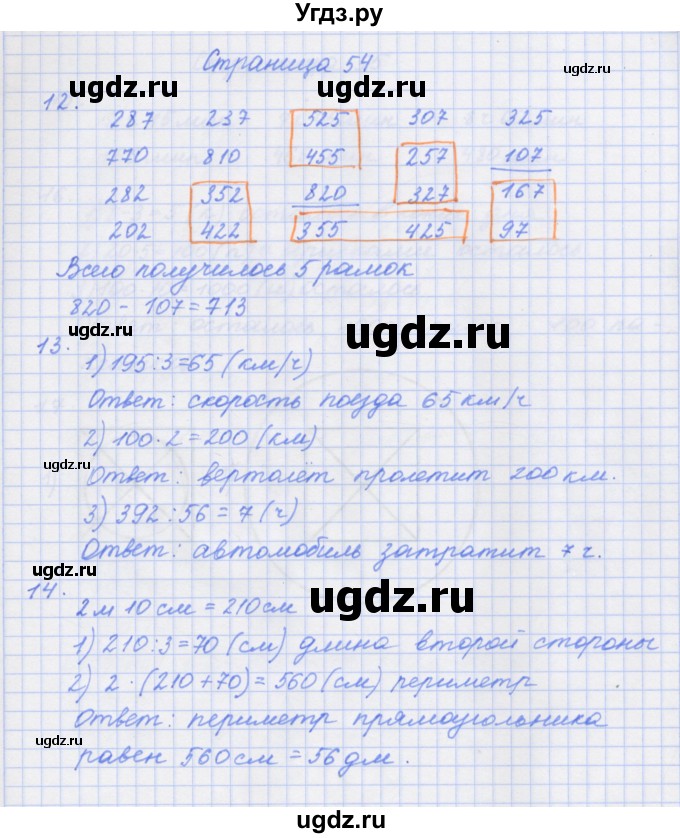 Угдз.ру
Страница 54
ugdz.ru ugdz.ru ugdz.ru
12.
287 237 525 307 325
770 810 455 257 107
ugdz.ru ugdz.ru ugdz.ru
282 352 820 327 167
202 422 355 425 97
Всего получилось 5 рамок
820 - 107 = 713
ugdz.ru ugdz.ru
13.
1) 195:3=65 (км/ч)
Ответ: скорость поезда 65 км/ч
ugdz.ru ugdz.ru
2) 100·2=200 (км)
ugdz.ru
Ответ: вертолёт пролетит 200 км.
3) 392:56=7 (ч)
Ответ: автомобиль затратит 7 ч.
ugdz.ru ugdz.ru ugdz.ru
14.
2 м 10 см = 210 см
1) 210:3=70 (см) длина второй стороны
2) 2·(210+70)=560 (см) периметр
Ответ: периметр прямоугольника
ugdz.ru ugdz.ru
равен 560 см = 56 дм.
ugdz.ru
ugdz.ru